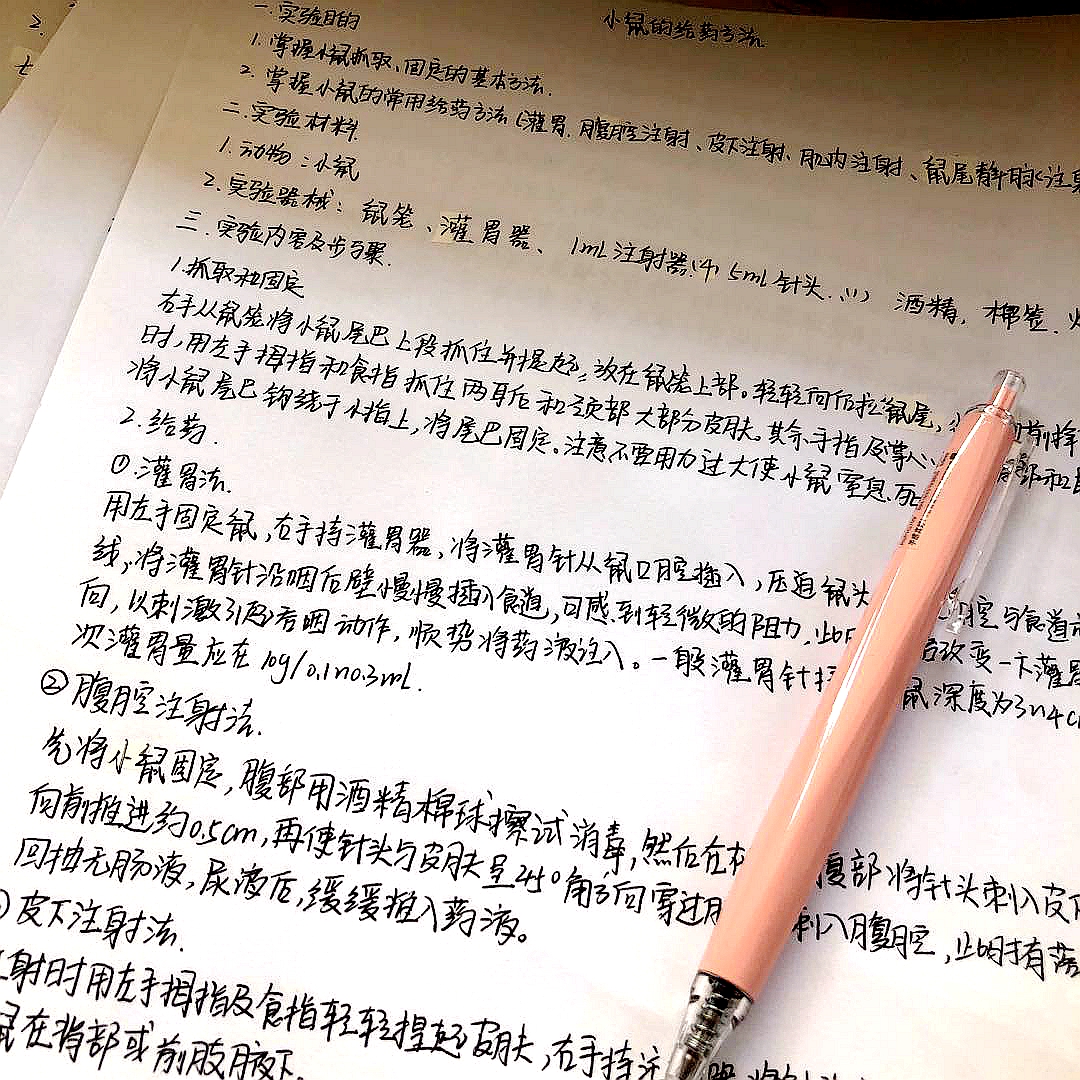 小鼠的给药方法
一.实验目的
1.掌握小鼠抓取、固定的基本方法.
2.掌握小鼠的常用给药方法(灌胃.腹腔注射、皮下注射、肌内注射、鼠尾静脉注射
二.实验材料
1.动物:小鼠
2.实验器械:鼠笼、灌胃器、1mL注射器(4) 5mL针头 酒精,棉签.
三.实验内容及步骤.
1.抓取和固定
右手从鼠笼将小鼠尾巴上段抓住并提起,放在鼠笼上部。轻轻向后拉鼠尾, 向前挣
时,用左手拇指和食指抓住两耳后和颈部大部分皮肤。其余手指及掌心
将小鼠尾巴钩绕于小指上,将尾巴固定。注意不要用力过大使小鼠窒息.死
2.给药.
①.灌胃法.
用左手固定鼠,右手持灌胃器,将灌胃针从鼠口腔插入,压迫鼠头 口腔与食道
线,将灌胃针沿咽后壁慢慢插入食道,可感到轻微的阻力,此时 改变一下灌胃
向,以刺激引起吞咽动作,顺势将药液注入。一般灌胃针插 鼠深度为3~4c
次灌胃量应在10g/0.1~0.3ml.
②腹腔注射法.
先将小鼠固定,腹部用酒精棉球擦试消毒,然后在 腹部将针头刺入皮
向前推进约0.5cm,再使针头与皮肤呈45°角方向穿过 刺入腹腔,此时有落
回抽无肠液,尿液后,缓缓推入药液。
皮下注射法.
射时用左手拇指及食指轻轻提起皮肤,右手持注
鼠在背部或前肢腋下.
2.